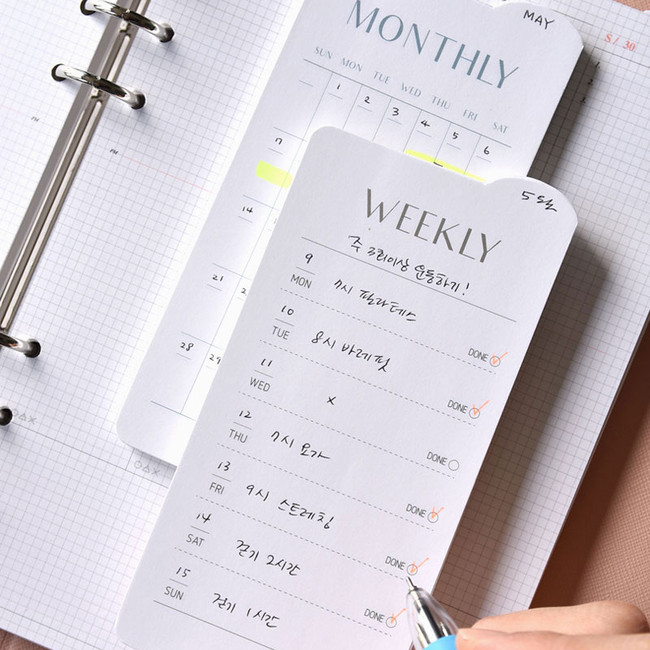 MAY
MONTHLY
SUN MON TUE WED THU FRI SAT
1 2 3 4 5 6
7
14
21 2
28 29
5/30
PM
PM
5월
WEEKLY
주 3회이상 운동하기!
9 MON 7시 필라테스 DONE
10 TUE 8시 바레핏 DONE
11 WED x DONE
12 THU 7시 요가 DONE
13 FRI 9시 스트레칭 DONE
14 SAT 걷기 2시간 DONE
15 SUN 걷기 1시간